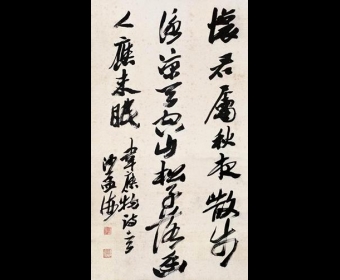 懷君屬秋夜散步
詠涼天空山松子落幽
人應未眠 韋應物詩
沙孟海